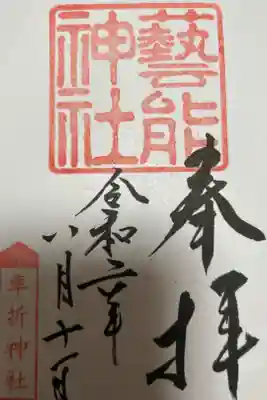 奉拝
藝能
神社
令和 年
八月十一日
車折神社